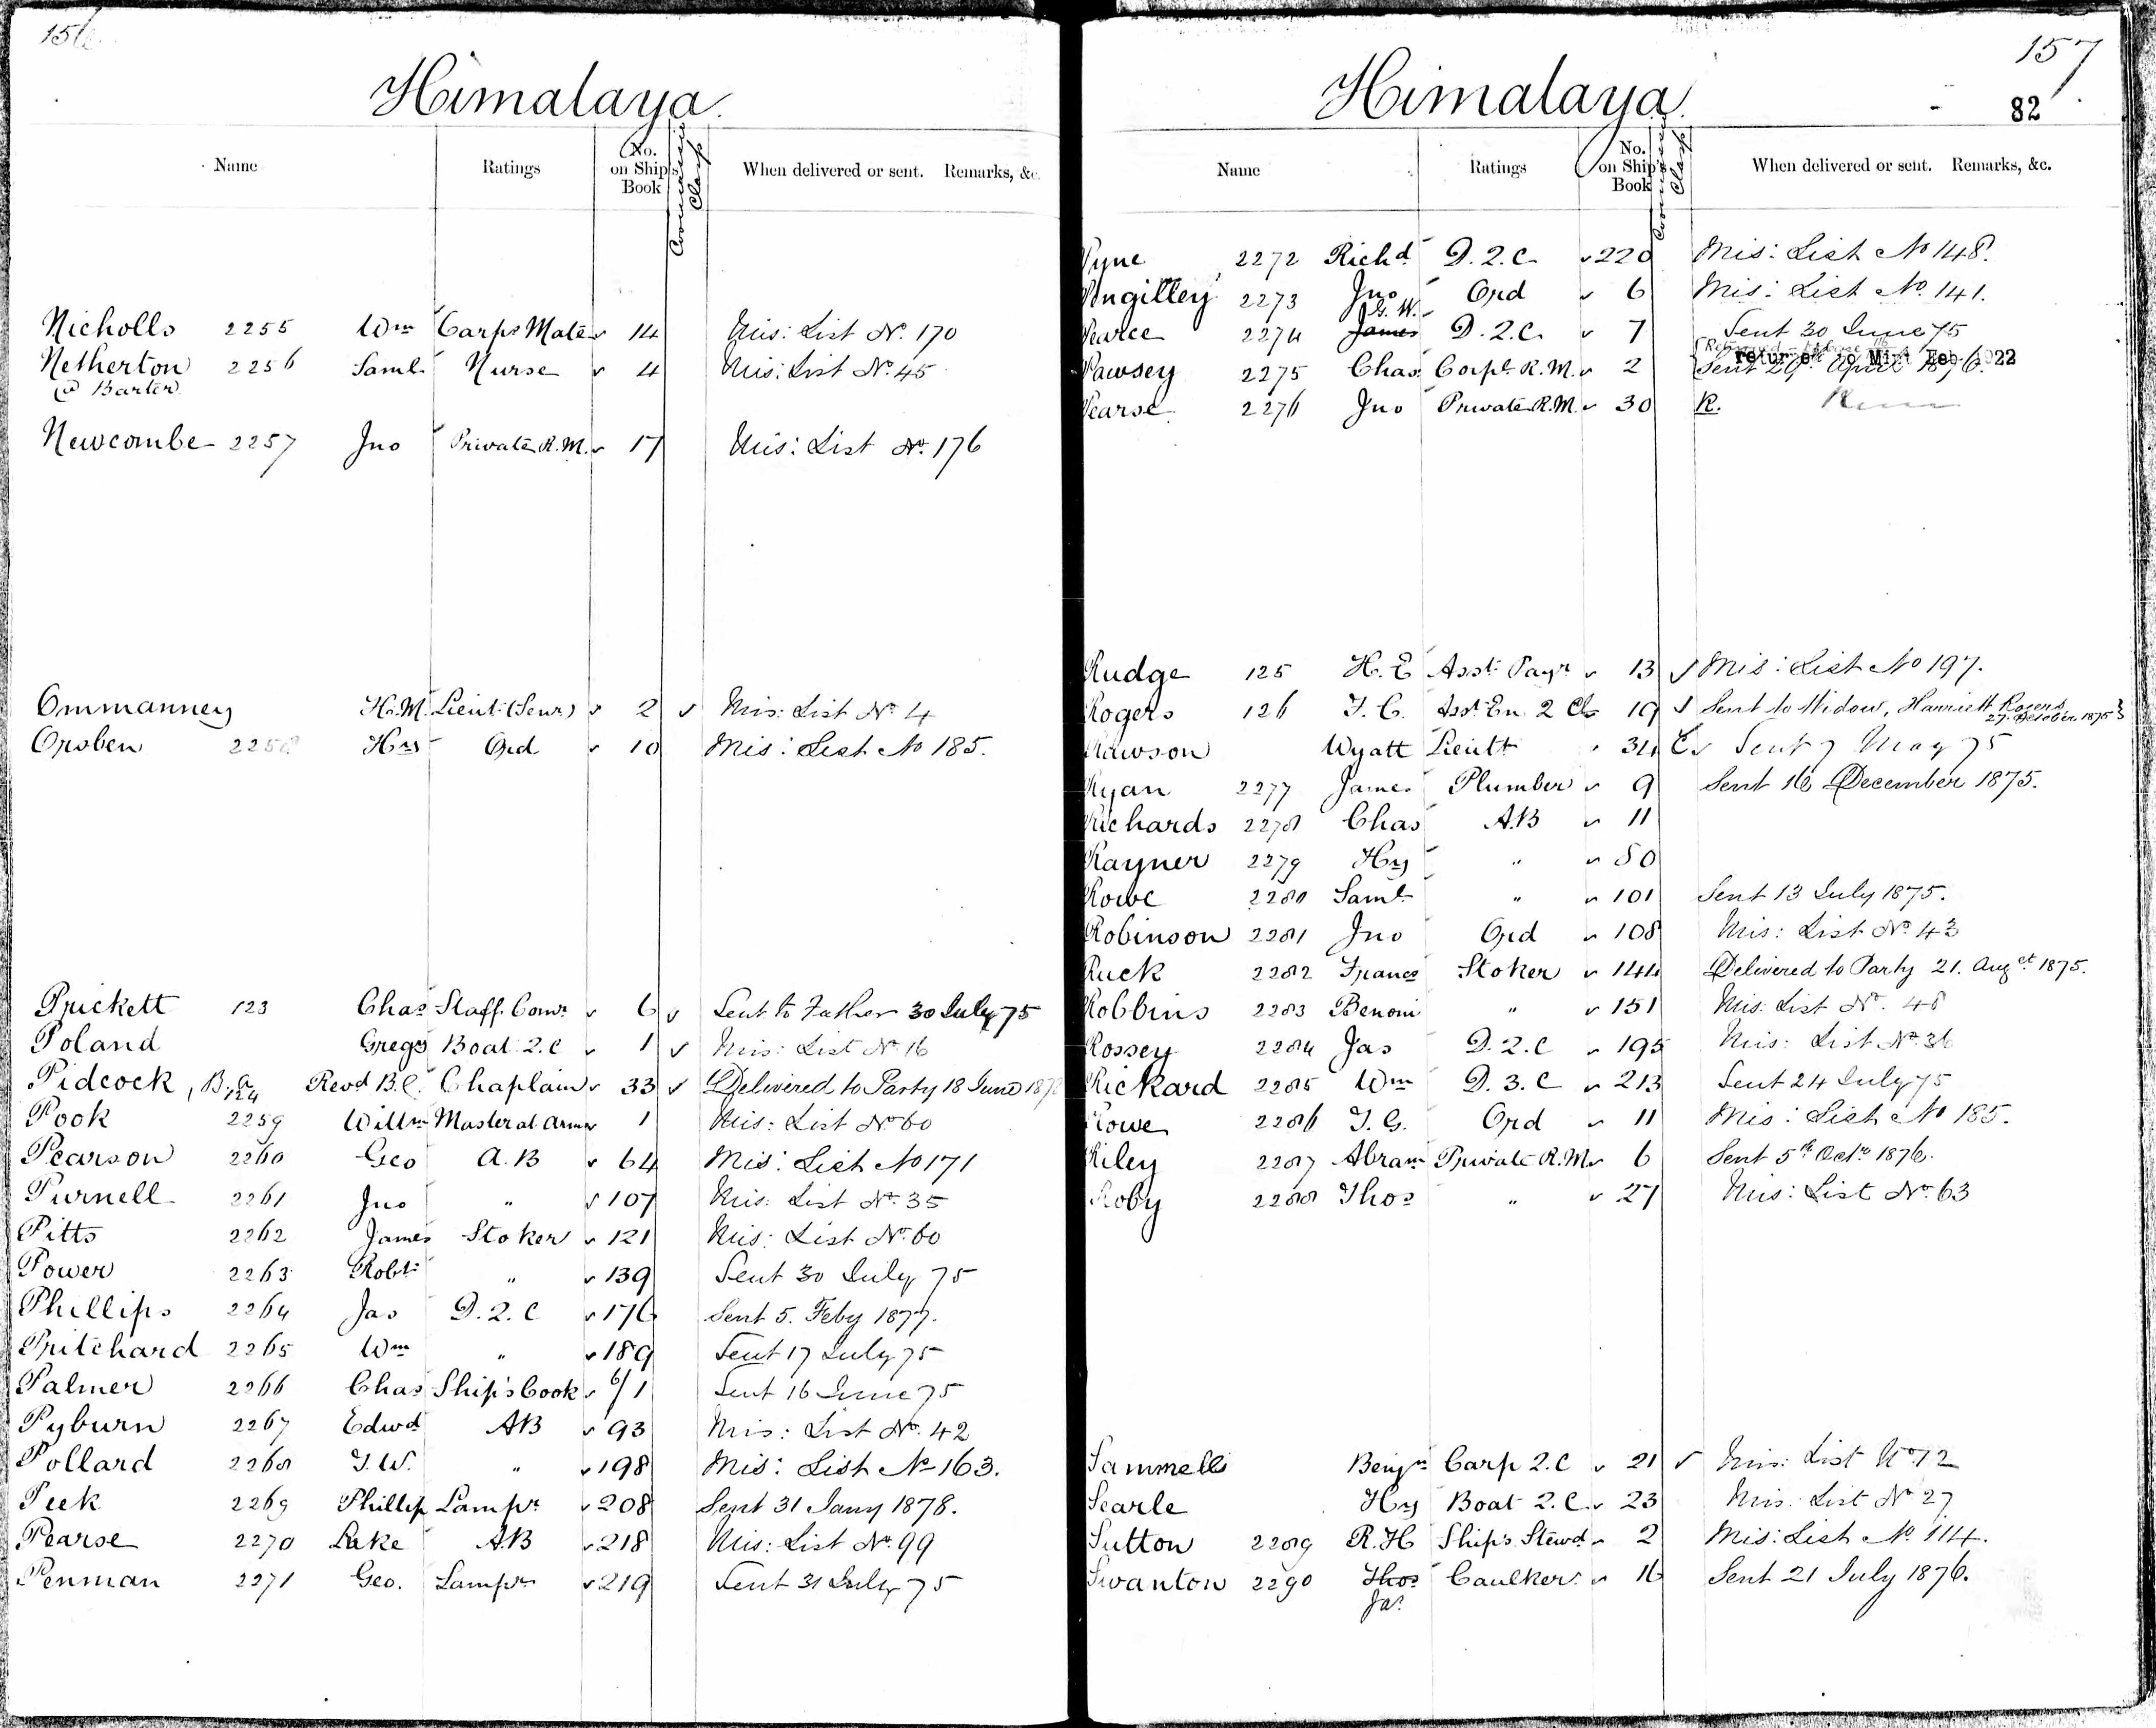 156
Himalaya
Name Ratings No. on Ship's Book Clasp When delivered or sent. Remarks, &c.
Nicholls 2255 Wm Carps Mate 14 Mis: List No. 170
Netherton 2256 Saml. Nurse 4 Mis: List No. 45
(a Barter)
Newcombe 2257 Jno Private R.M. 17 Mis: List No. 176
Ommanney H.M. Lieut. (Senr.) 2 Mis: List No. 4
Orsben 2258 Hy Ord 10 Mis: List No 185.
Prickett 123 Chas Staff. Comr. 6 Sent to Father 30 July 75
Poland Gregy Boat. 2.C 1 Mis: List No. 16
Pidcock, B.C. 124 Revd B.C. Chaplain 33 Delivered to Party 18 June 187
Pook 2259 Willm Master at Arms 1 Mis: List No. 60
Pearson 2260 Geo A.B 64 Mis: List No 171
Purnell 2261 Jno " 107 Mis: List No. 35
Pitts 2262 James Stoker 121 Mis: List No. 60
Power 2263 Robt. " 139 Sent 30 July 75
Phillips 2264 Jas D.2.C 176 Sent 5. Feby 1877.
Pritchard 2265 Wm " 189 Sent 17 July 75
Palmer 2266 Chas Ship's Cook 6/1 Sent 16 June 75
Pyburn 2267 Edwd AB 93 Mis: List No. 42
Pollard 2268 T.W. " 198 Mis: List No 163.
Peek 2269 Phillip Lampr. 208 Sent 31 Jany 1878.
Pearse 2270 Luke AB 218 Mis: List No. 99
Penman 2271 Geo. Lampr 219 Sent 31 July 75
157
Himalaya
82
Name Ratings No. on Ship's Book Clasp When delivered or sent. Remarks, &c.
Pyne 2272 Richd. D.2.C. 220 Mis: List No 148.
Pngilley 2273 Jno Ord 6 Mis: List No. 141.
G.W.
Pearce 2274 James D.2.C. 7 Sent 30 June 75
returned to Mint Feb 1922
Pawsey 2275 Chas Corpl. R.M. 2 Sent 29 April 1876.
Pearse 2276 Jno Private R.M. 30 R.
Rudge 125 H.E Asst. Payr 13 Mis: List No 197.
Rogers 126 T.C. Asst. En. 2 Cl 19 Sent to Widow, Harriett Rogers
27. October 1875
Rawson Wyatt Lieutt 34 C Sent 7 May 75
Ryan 2277 James Plumber 9 Sent 16 December 1875.
Richards 2278 Chas A.B 11
Rayner 2279 Hy " 80
Rowe 2280 Saml. " 101 Sent 13 July 1875.
Robinson 2281 Jno Ord 108 Mis: List No. 43
Ruck 2282 Francs Stoker 144 Delivered to Party 21. Augst. 1875.
Robbins 2283 Benoni " 151 Mis: List No. 48
Rossey 2284 Jas D.2.C 195 Mis: List No. 36
Rickard 2285 Wm D.3.C 213 Sent 24 July 75
Rowe 2286 T.G. Ord 11 Mis: List No 185.
Riley 2287 Abram Private R.M. 6 Sent 5th Octr. 1876.
Roby 2288 Thos " 27 Mis: List No. 63
Sammells Benjn Carp 2.C 21 Mis: List No. 12
Searle Hy Boat 2.C. 23 Mis: List No 27
Sutton 2289 R.H Ship's Stewd. 2 Mis: List No. 114.
Swanton 2290 Thos Caulker 16 Sent 21 July 1876.
Jas